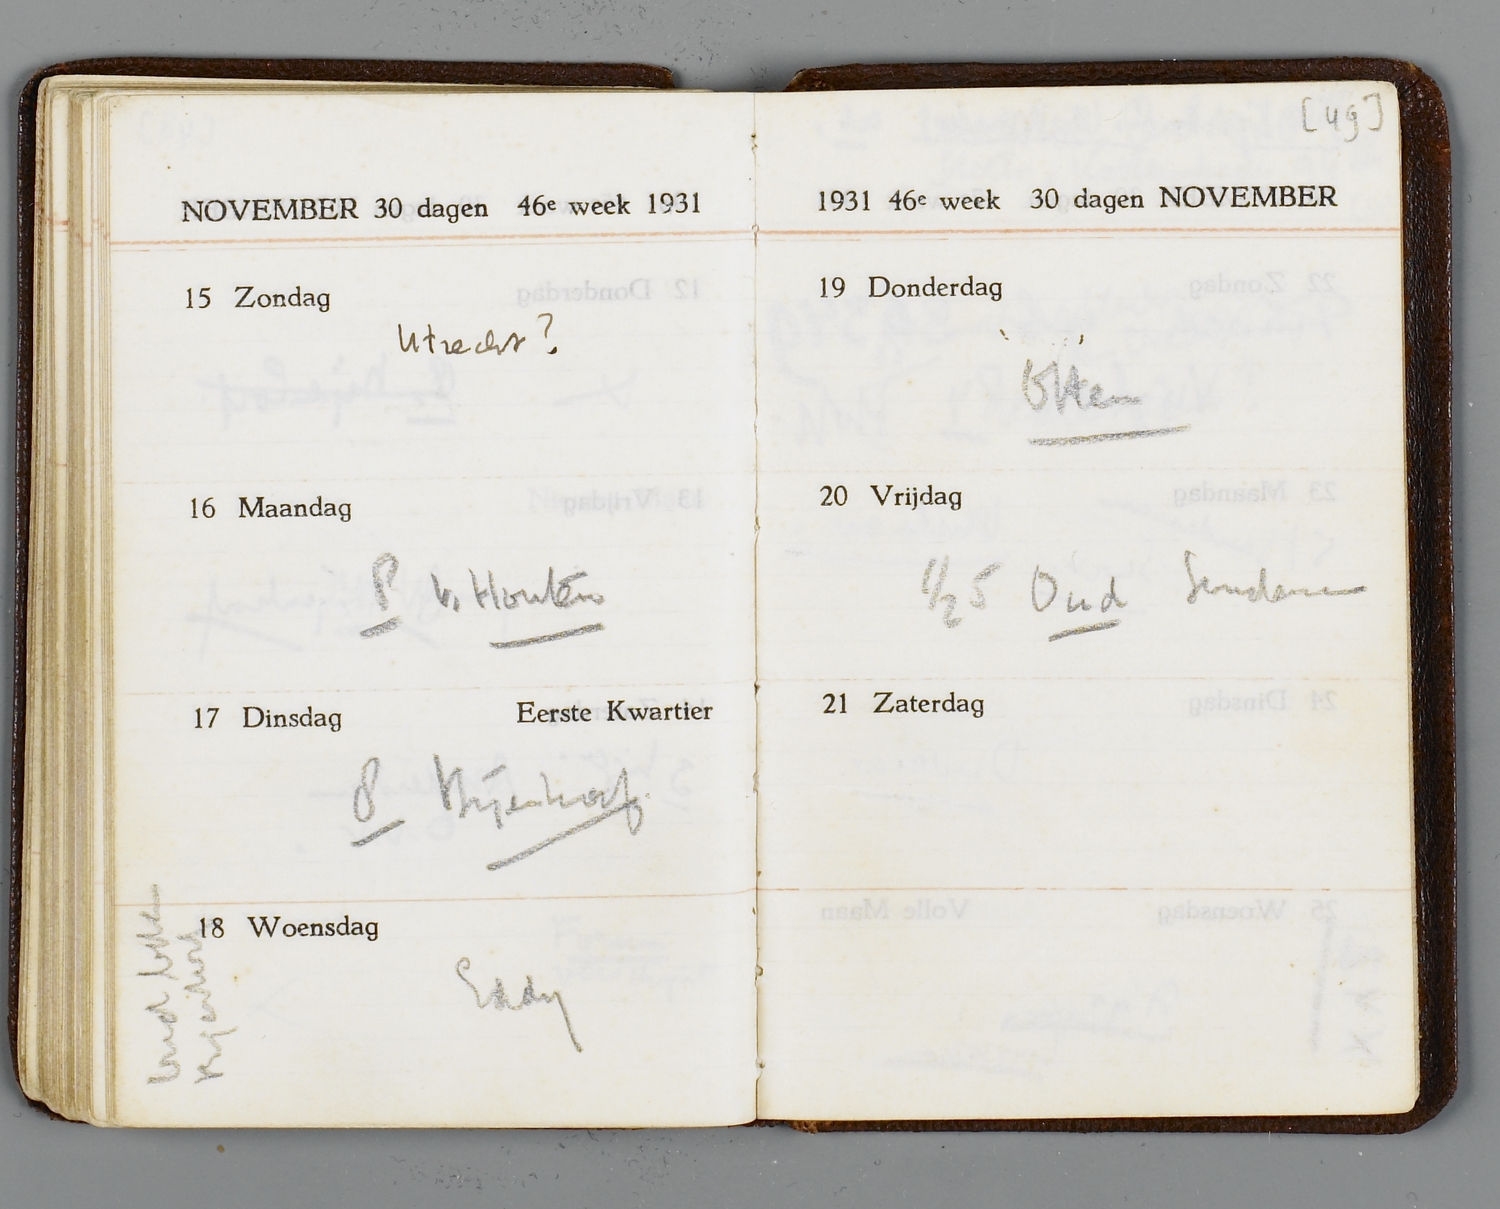 [49]
NOVEMBER 30 dagen 46e week 1931
15 Zondag
Utrecht?
16 Maandag
P v. Houten
17 Dinsdag Eerste Kwartier
P Nijenhoff
18 Woensdag
Eddy
1931 46e week 30 dagen NOVEMBER
19 Donderdag
Otten
20 Vrijdag
1/2 5 Oud
21 Zaterdag